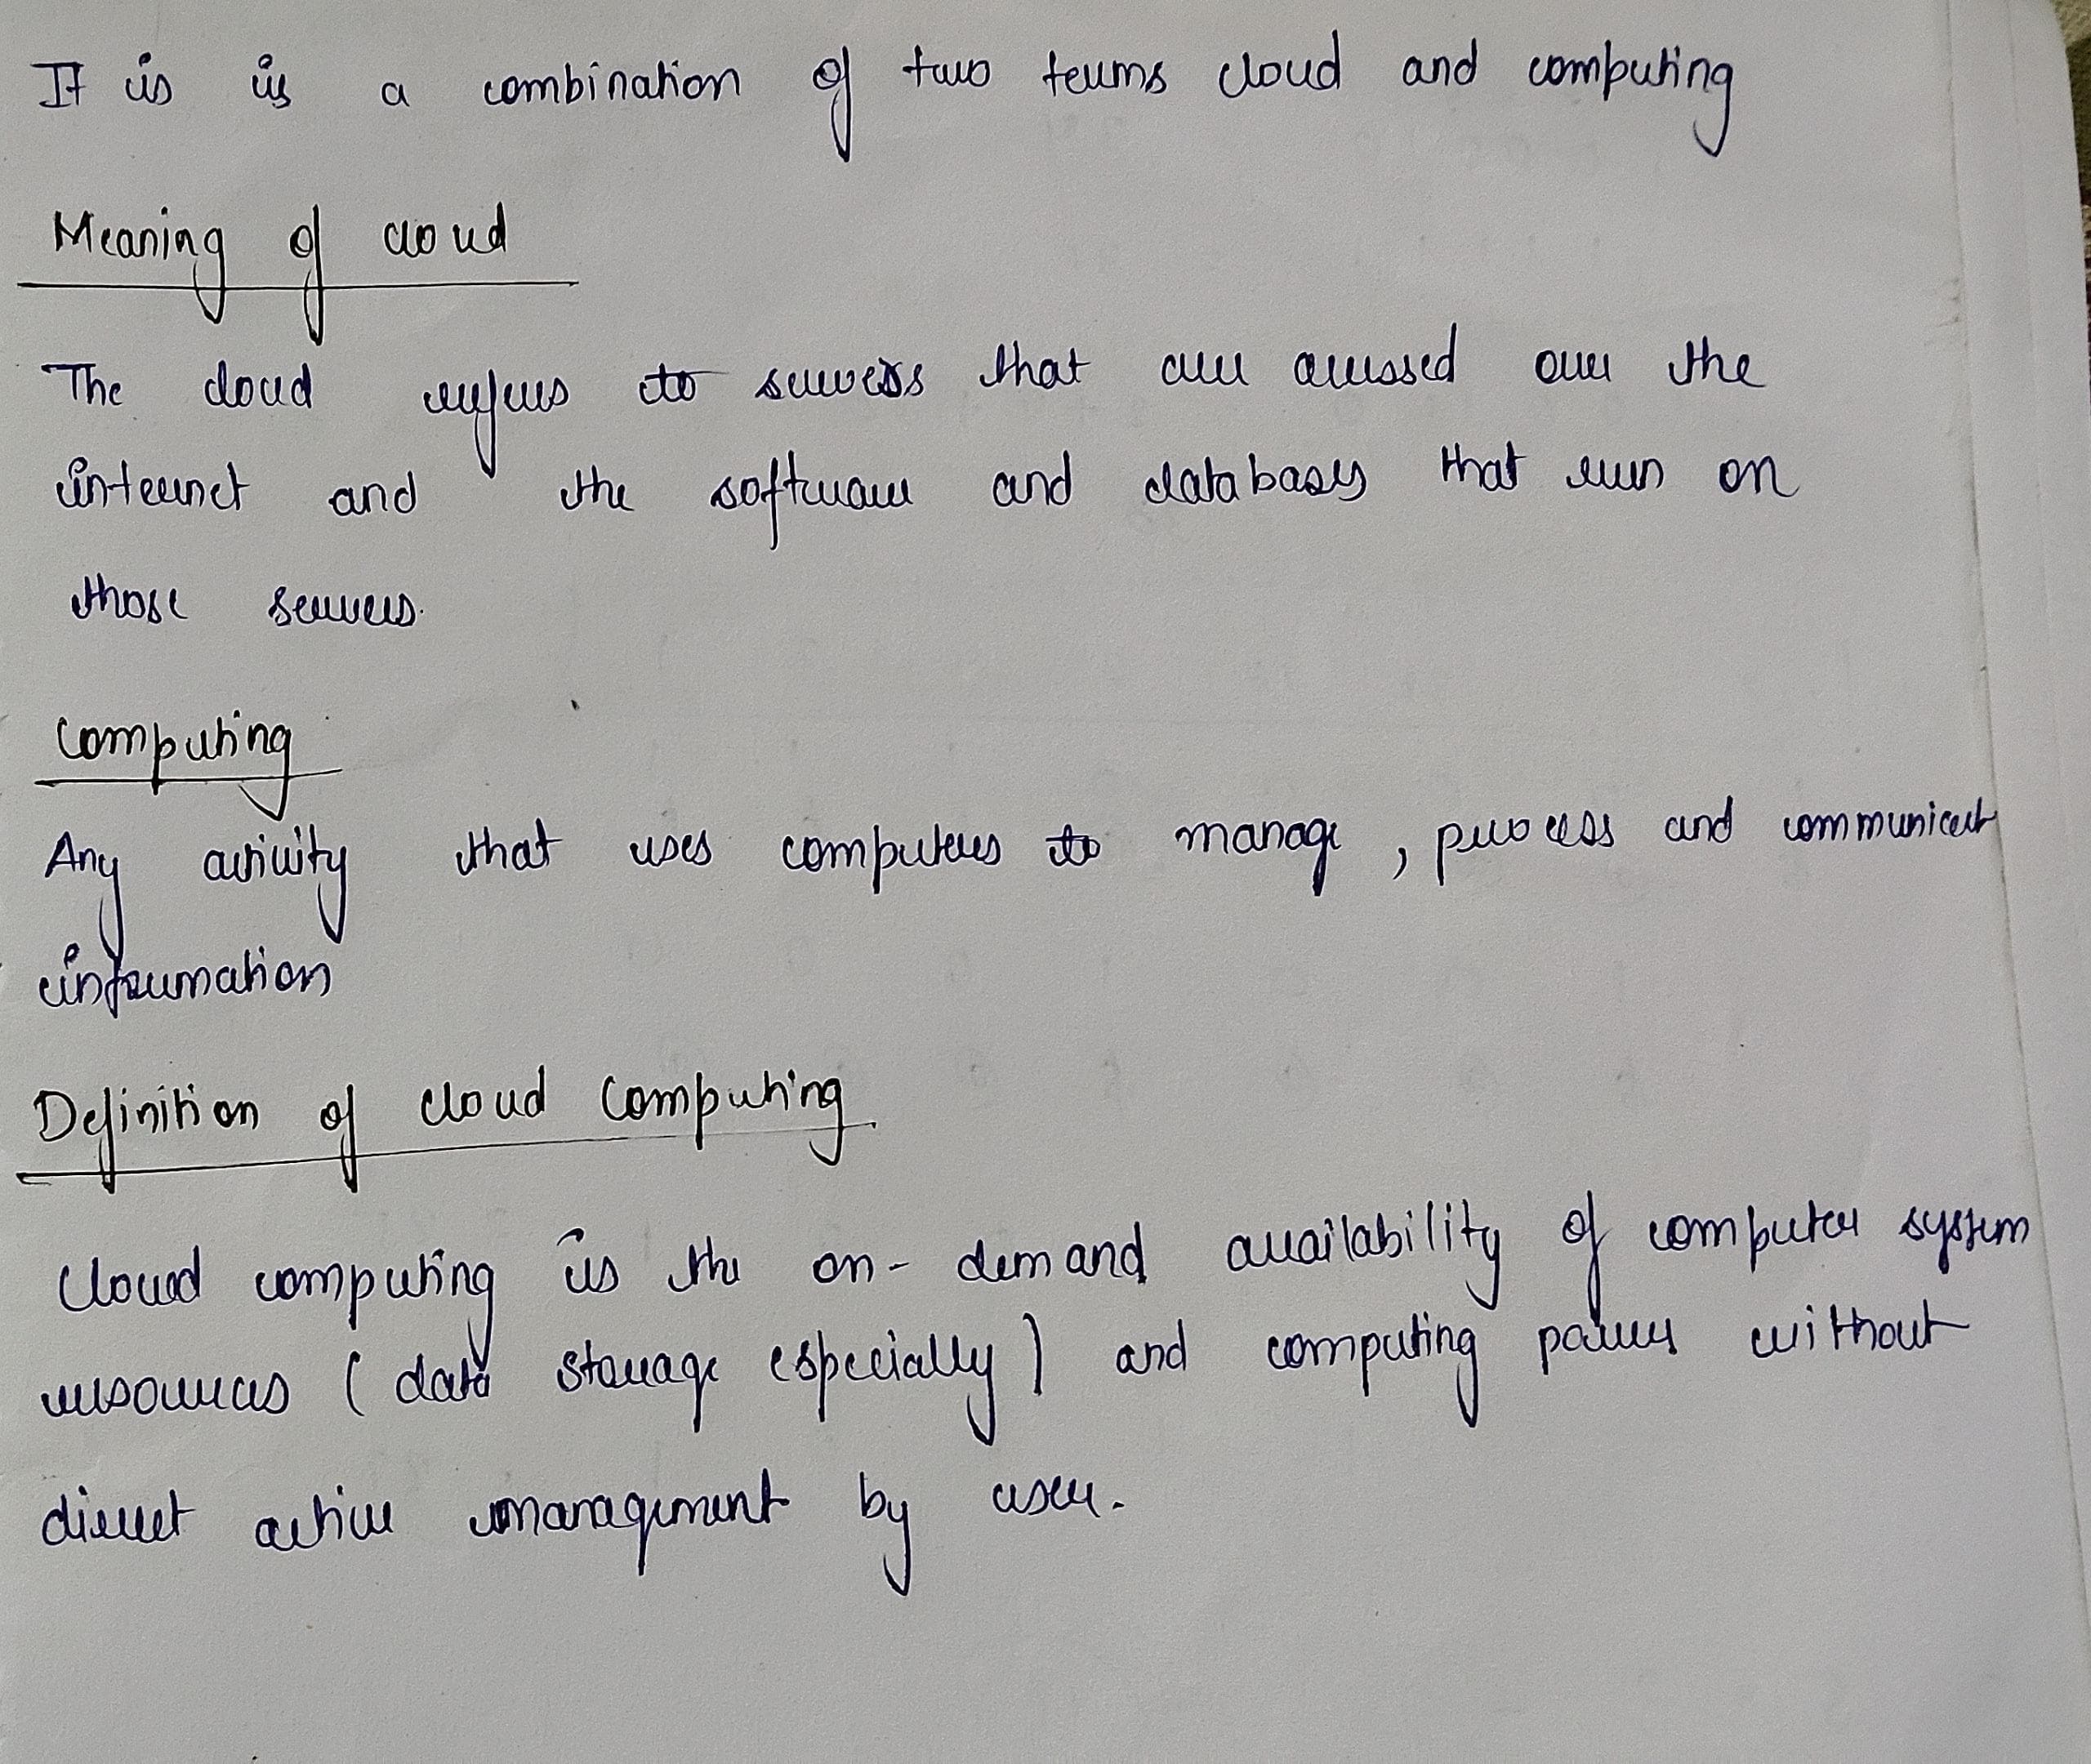 It is is a combination of two terms cloud and computing
Meaning of cloud
The cloud refers to servers that are accessed over the
internet and the software and databases that run on
those servers.
Computing
Any activity that uses computers to manage, process and communicate
information
Definition of cloud Computing
Cloud computing is the on-demand availability of computer system
resources (data storage especially) and computing power without
direct active management by user.